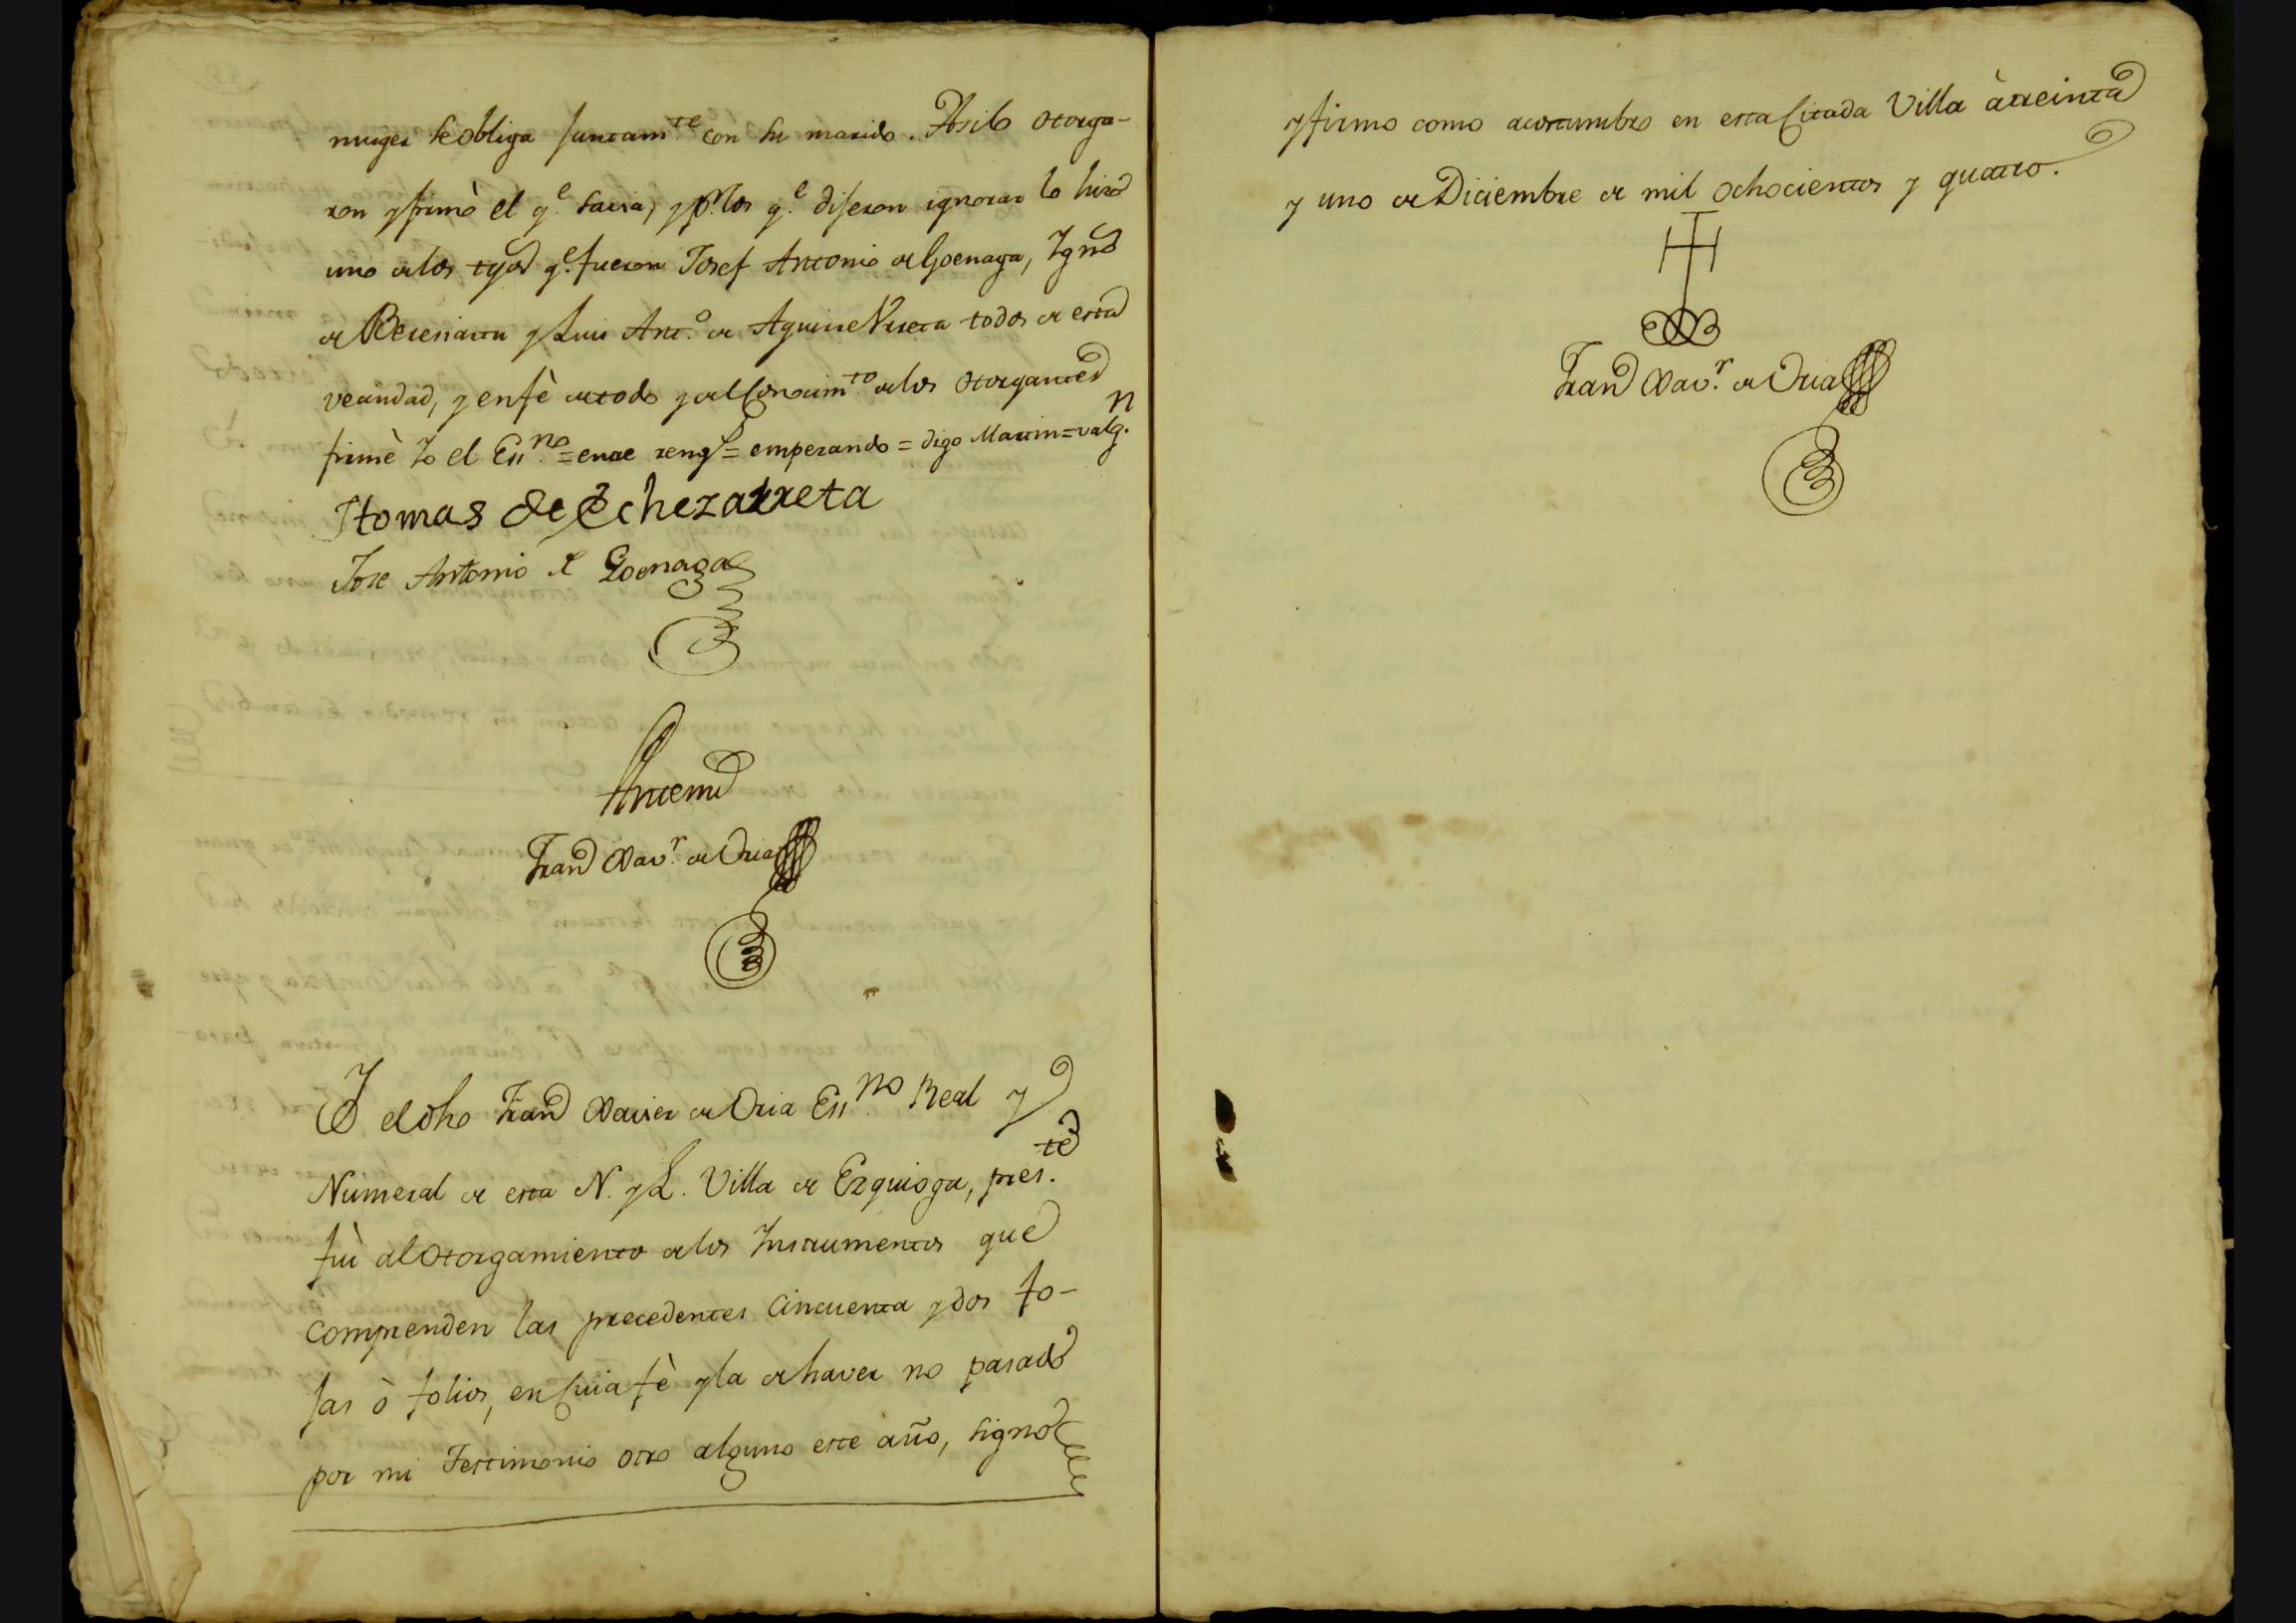 muger se obliga juntam.te con su marido. Asi lo otorga-
ron y firmò el q.e savia, y p.r los q.e dijeron ignorar lo hizo
uno de los tgos q.e fueron Josef Antonio de Goenaga, Ygn.o
de Beresiartu y Luis Ant.o de Aguirre Urreta todos de esta
vecindad, y en fè de todo y del conocim.to de los otorgantes
firmè Yo el Ess.no = entre rengl.s = emperando = digo Martin = valg.n
Thomas de Echezarreta
Jose Antonio de Goenaga
Antemi
Fran.co Xav.r de Oria
Yo el dho Fran.co Xavier de Oria Ess.no Real y
Numeral de esta N. y L. Villa de Ezquioga, pres.te
fuì al otorgamiento de los Instrumentos que
comprenden las precedentes cincuenta y dos fo-
jas ò folios, en cuia fè y la de haver no pasado
por mi Testimonio otro alguno este año, signo
y firmo como acostumbro en esta citada Villa à treinta
y uno de Diciembre de mil ochocientos y quatro.
Fran.co Xav.r de Oria